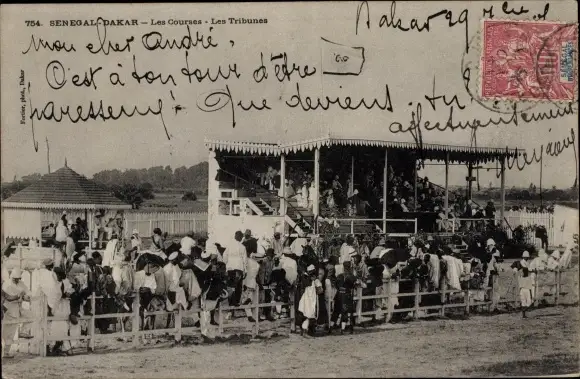 754. SENEGAL-DAKAR — Les Courses - Les Tribunes
Dakar 29
Mon cher André,
C'est à ton tour d'être
paresseux! Que deviens tu
affectueusement
Fortier, phot., Dakar